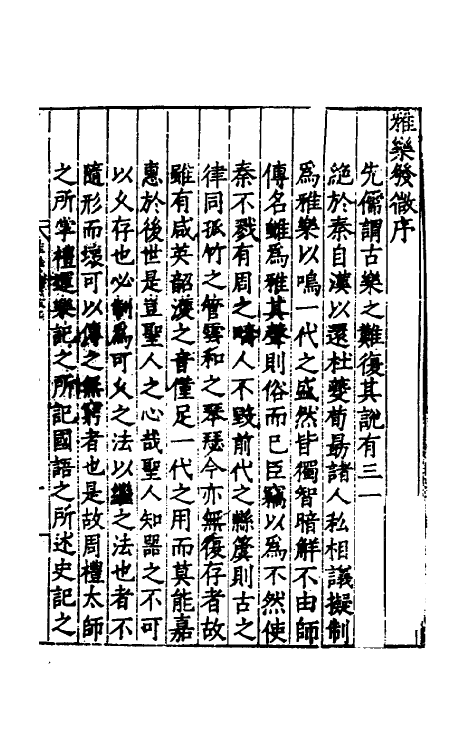 雅樂發微序
先儒謂古樂之難復其說有三一
絕於秦自漢以還杜夔荀勗諸人私相議擬制
爲雅樂以鳴一代之盛然皆獨智暗解不由師
傳名雖爲雅其聲則俗而已臣竊以爲不然使
秦不戮有周之疇人不毀前代之縣簴則古之
律同孤竹之管雲和之琴瑟今亦無復存者故
雖有咸英韶濩之音僅足一代之用而莫能嘉
惠於後世是豈聖人之心哉聖人知器之不可
以久存也必制爲可久之法以繼之法也者不
隨形而壞可以傳之無窮者也是故周禮太師
之所掌禮運樂記之所記國語之所述史記之